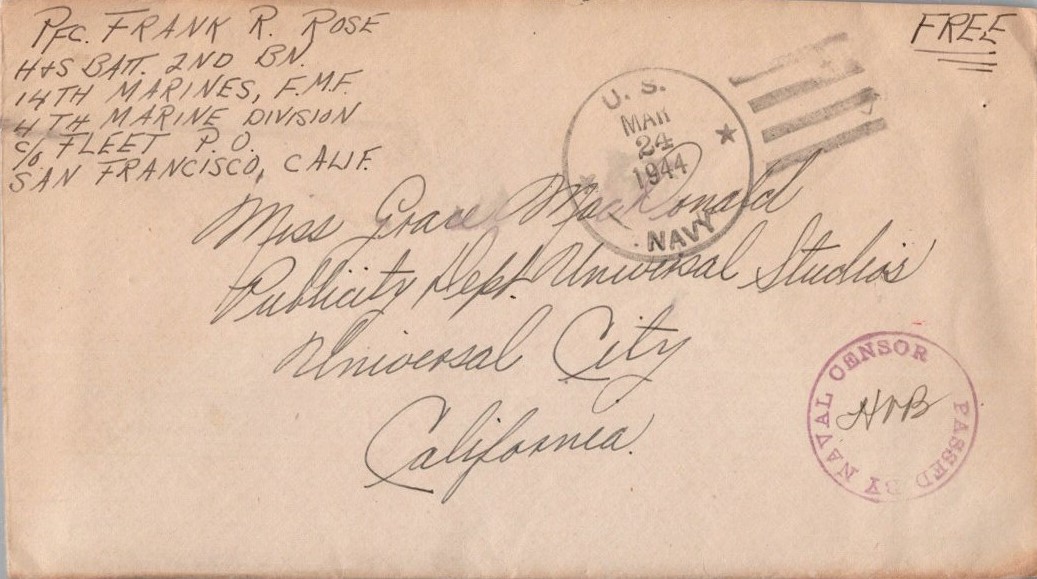 PFC. FRANK R. ROSE
H+S BATT. 2ND BN.
14TH MARINES, F.M.F.
4TH MARINE DIVISION
c/o FLEET P.O.
SAN FRANCISCO, CALIF.
FREE
U. S.
MAR
24
1944
NAVY
Miss Grace MacDonald
Publicity Dept Universal Studios
Universal City
California.
PASSED BY NAVAL CENSOR